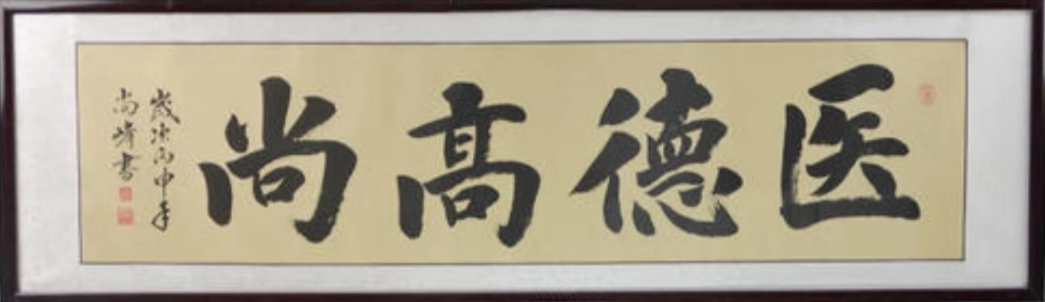 医德高尚
歲次丙申年
尚峰書